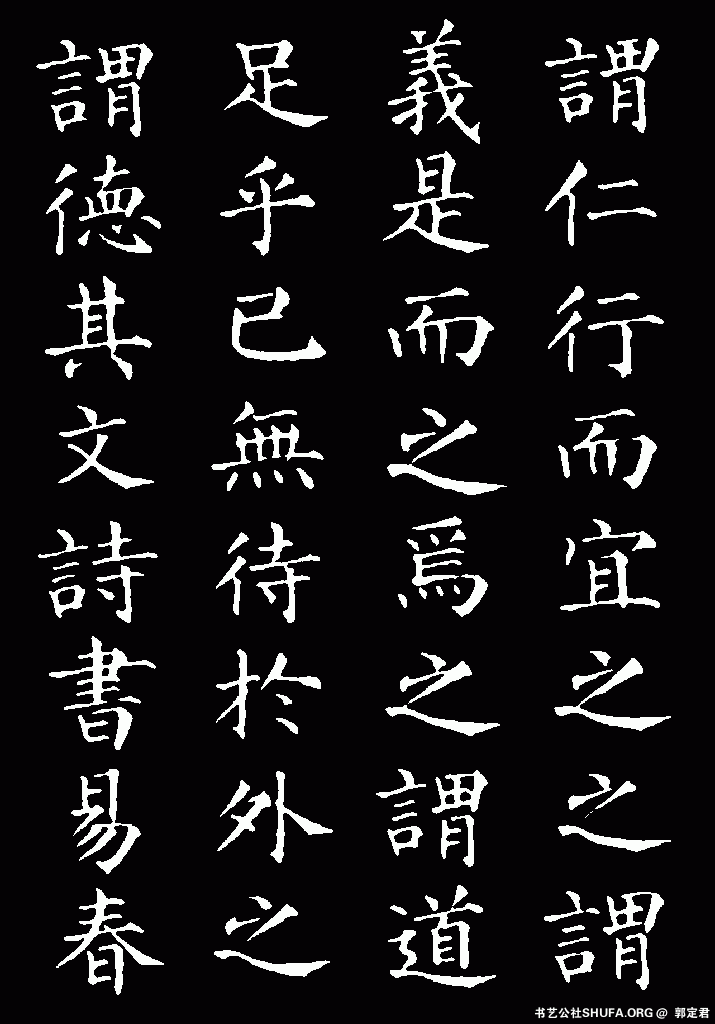 謂仁行而宜之之謂
義是而之焉之謂道
足乎已無待於外之
謂德其文詩書易春
书艺公社SHUFA.ORG @ 郭定君